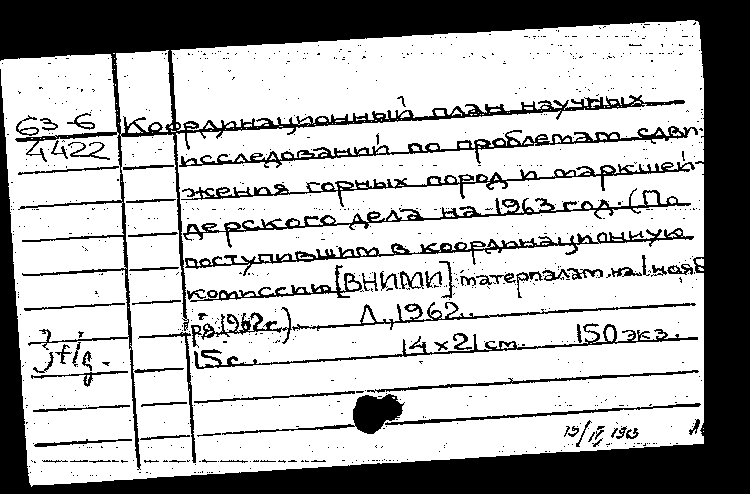 63-6 Координационный план научных
4422
исследований по проблемам сдви-
жения горных пород и маркшей-
дерского дела на 1963 год. (По
поступившим в координационную
комиссию [ВНИМИ] материалам на 1 нояб
ря 1962 г.) Л., 1962.
15 с. 14 x 21 см. 150 экз.
19/IV 1963